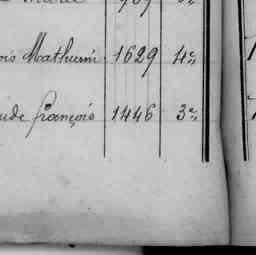 ois Mathurin 1629 4e
ude françois 1446 3e